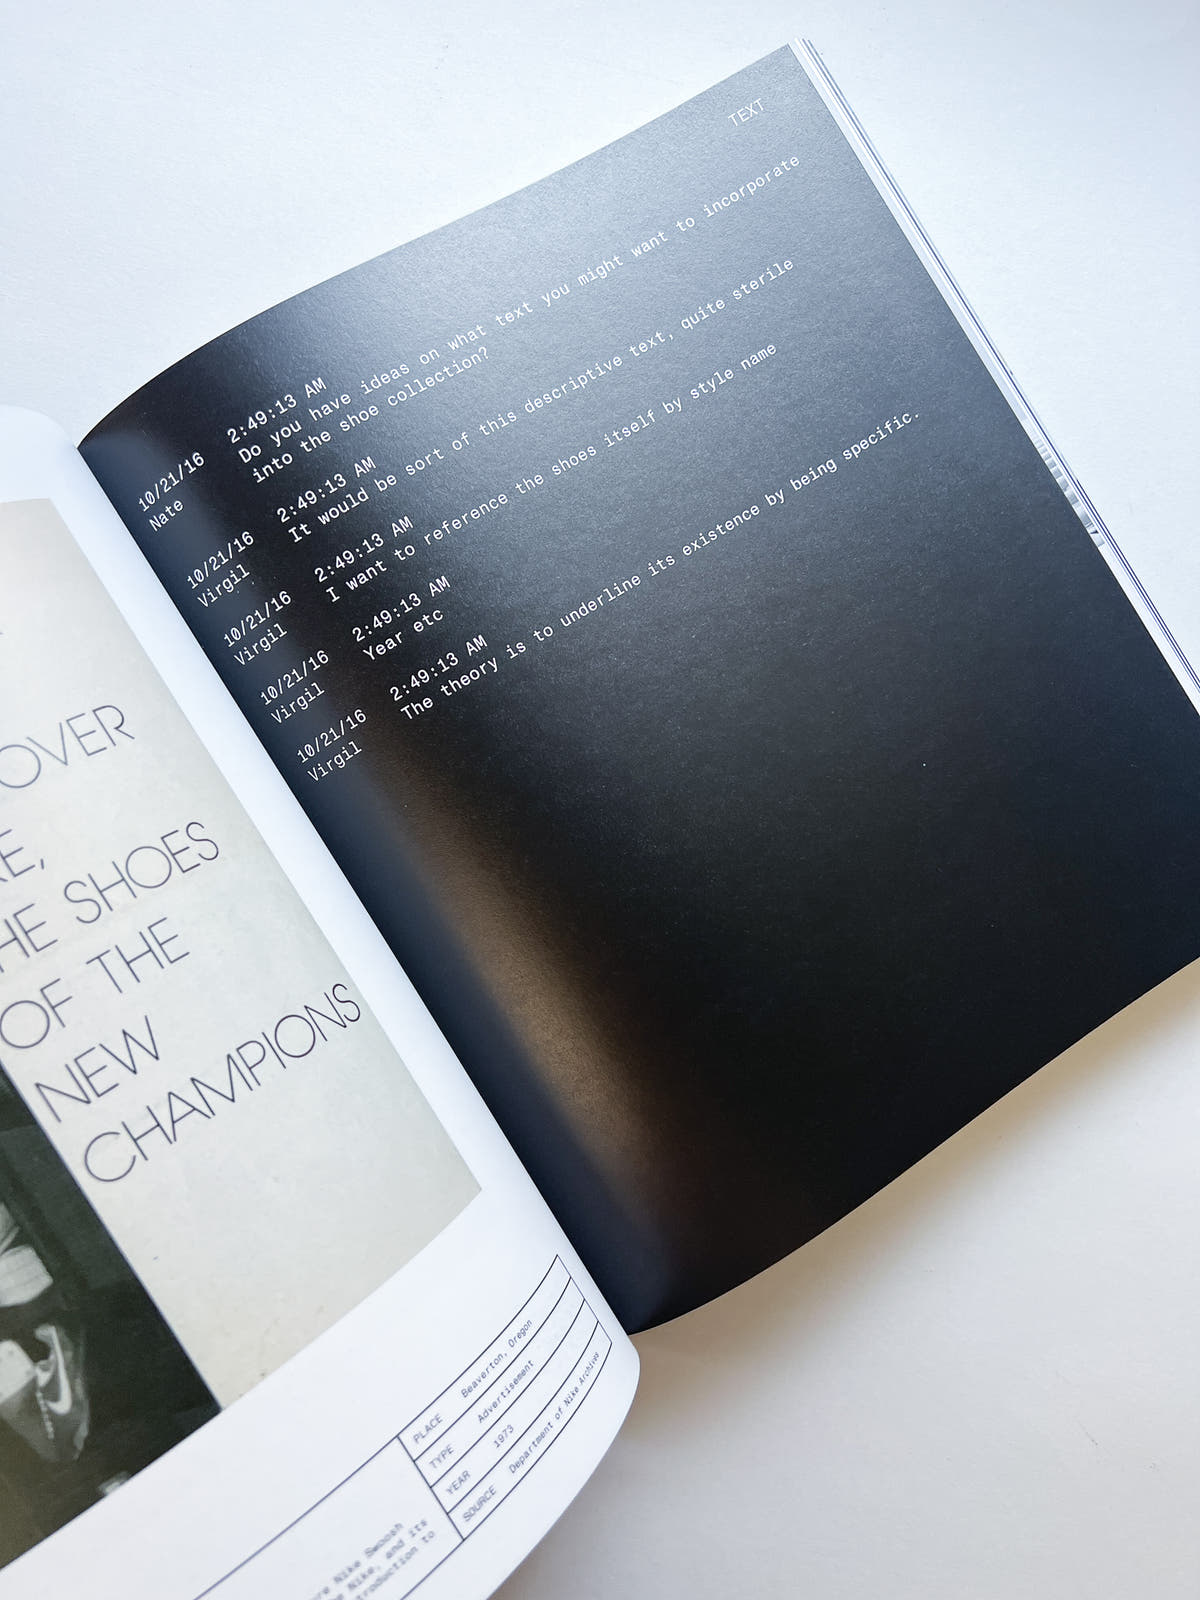 OVER
THE SHOES
OF THE
NEW
CHAMPIONS
PLACE Beaverton, Oregon
TYPE Advertisement
YEAR 1973
SOURCE Department of Nike Archives
Nike Swoosh
Nike, and its
to
TEXT
10/21/16 2:49:13 AM
Nate Do you have ideas on what text you might want to incorporate
into the shoe collection?
10/21/16 2:49:13 AM
Virgil It would be sort of this descriptive text, quite sterile
10/21/16 2:49:13 AM
Virgil I want to reference the shoes itself by style name
10/21/16 2:49:13 AM
Virgil Year etc
10/21/16 2:49:13 AM
Virgil The theory is to underline its existence by being specific.